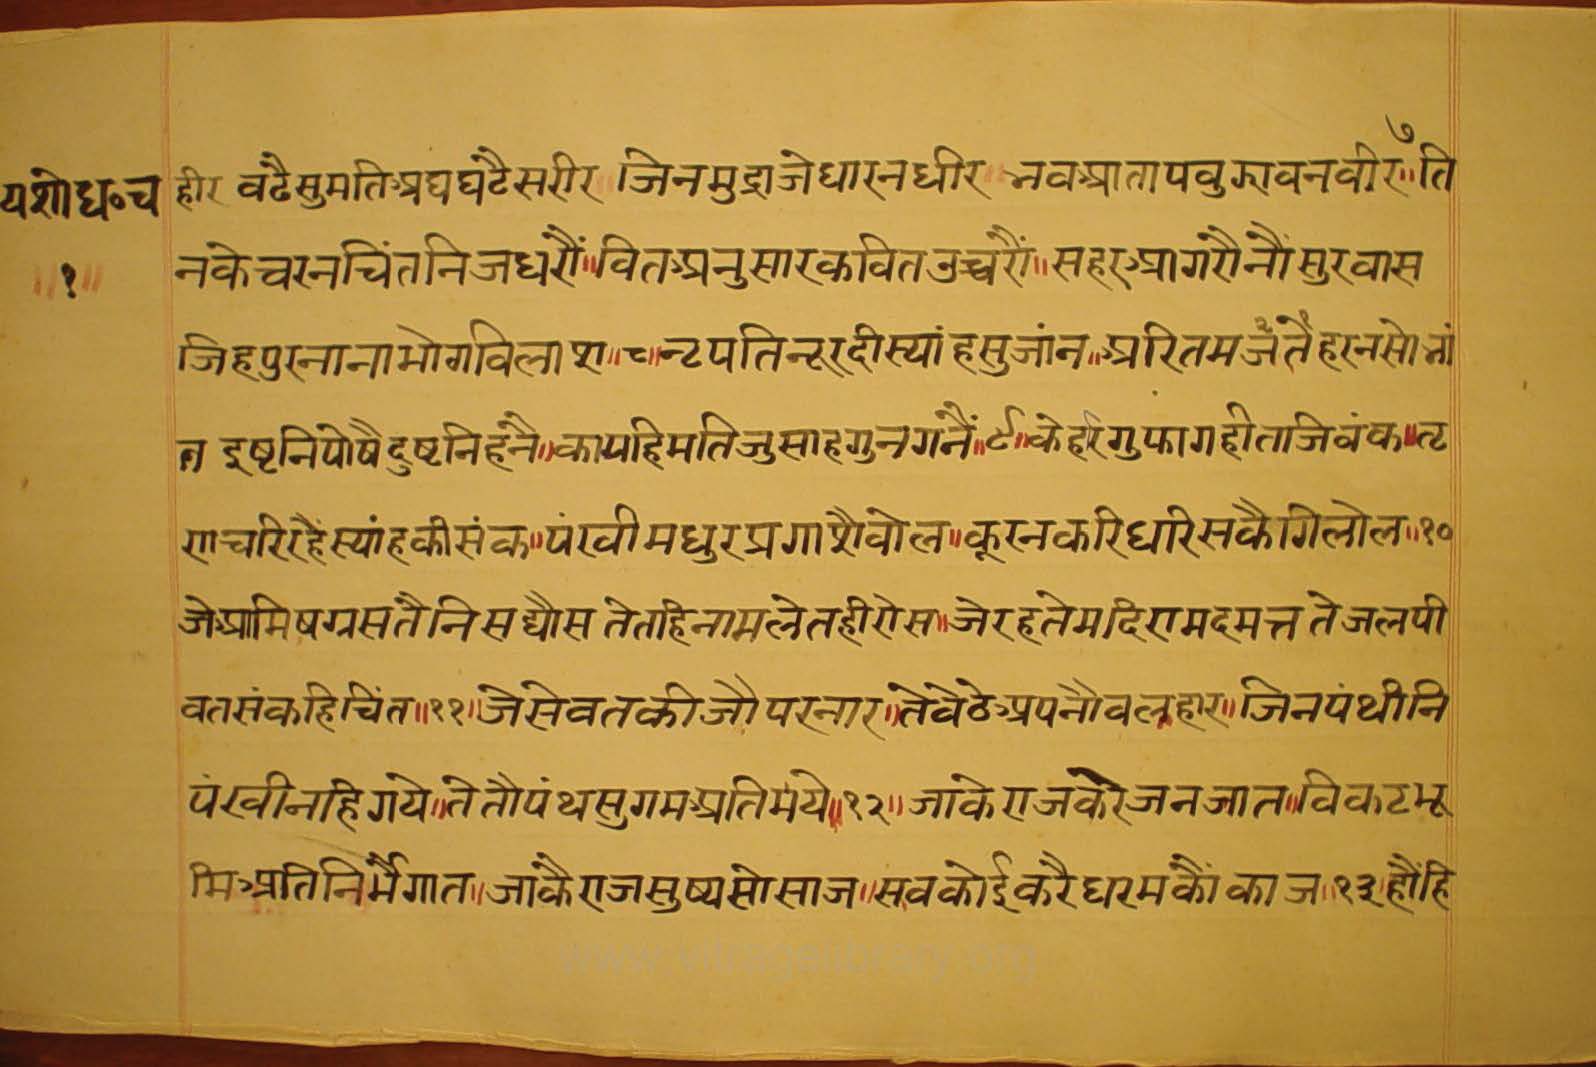 ७
यशोध॰च हीर वढैसुमतिअघघटैसरीर जिनमुद्राजेधारनधीर भवआतापवुझावनवीर॥ति
॥१॥ नकेचरनचिंतनिजधरौं॥वितअनुसारकवितउच्चरौं॥सहरआगरौनौंसुरवास
जिहपुरनानाभोगविलाश॥८॥नृपतिनूरदीस्यांहसुजांन॥अरितमजैतैहरनसोभां
न इष्टनिपोषैदुष्टनिहनै॥कापहिमतिजुसाहगुनगनैं॥९॥केहरिगुफागहीताजिवंक॥तृ
णचरिरहैंस्यांहकीसंक॥पंखीमधुरप्रगाशैवोल॥कूरनकरिधारिसकैगिलोल॥१०
जेआमिषग्रसतैनिसद्यौस तेताहिनामलेतहीरोस॥जेरहतेमदिरामदमत्त तेजलपी
वतसंकहिचिंत॥११॥जेसेवतकीजौपरनार॥तेवेठेअपनौवलहार॥जिनपंथीनि
पंखीनाहिगये॥तेतौपंथसुगमअतिभये॥१२॥जाकेराजकरेजनजात॥विकटभू
मिअतिनिर्भैगात॥जाकैराजसुष्यसोसाज॥सवकोईकरैधरमकौंकाज॥१३॥हौंहि
www.vitragelibrary.org